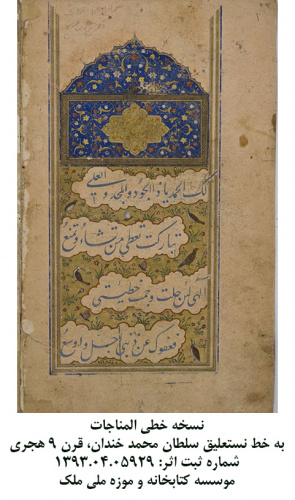 لك الحمد يا ذا الجود والمجد والعلى
تباركت تعطي من تشاء وتمنع
الهي لئن جلت وجمت خطيئتي
فعفوك عن ذنبي اجل واوسع
نسخه خطی المناجات
به خط نستعلیق سلطان محمد خندان، قرن ۹ هجری
شماره ثبت اثر: ۱۳۹۳.۰۴.۰۵۹۲۹
موسسه کتابخانه و موزه ملی ملک